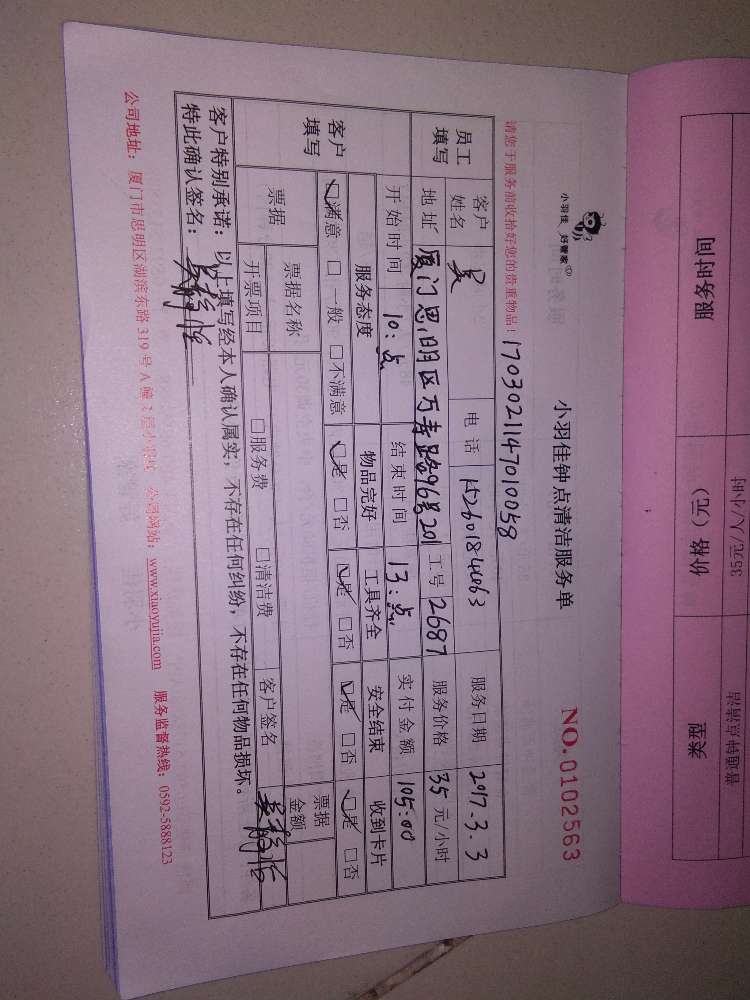 小羽佳 好管家
小羽佳钟点清洁服务单
NO.0102563
请您于服务前收拾好您的贵重物品！
1703021147010058
员工填写 客户姓名 吴 电话 服务日期 2017.3.3
地址 厦门思明区万寿路96号201 工号 2687 服务价格 35元/小时
开始时间 10:点 结束时间 13:点 实付金额 105:00
客户填写 服务态度 物品完好 工具齐全 安全结束 收到卡片
☑满意 □一般 □不满意 ☑是 □否 ☑是 □否 ☑是 □否 ☑是 □否
票据 票据名称 票据金额
开票项目 □服务费 □清洁费 客户签名 吴
客户特别承诺：以上填写经本人确认属实，不存在任何纠纷，不存在任何物品损坏。
特此确认签名：吴
公司地址：厦门市思明区湖滨东路319号A幢 公司网站：www.xiaoyujia.com 服务监督热线：0592-5888123
服务时间 价格（元） 类型
35元/人/小时 普通钟点清洁